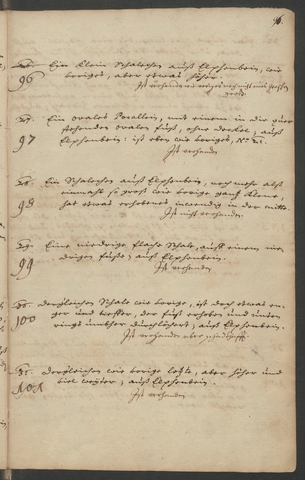 96 Ein Klein Schalchen auß Elphenbein, wie
voriges, aber etwas höher.
Ist vorhanden
97 Ein ovales Postelein, mit einem in die quer
stehenden ovalen fuß, ohne deckel, auß
Elphenbein: ist eben wie voriges, No
Ist vorhanden
98 Ein Schalchen auß Elphenbein, noch mehr alß
einmahl so groß wie vorige gantz kleine,
hat etwas erhobenes inwendig in der mitte.
Ist nicht vorhanden.
99 Eine niedrige flache Schale, auff einem nie-
drigen fuße, auß Elphenbein.
Ist vorhanden
100 dergleichen Schale wie vorige, ist doch etwas en-
ger und tieffer, der fuß erhoben und unten
rings umbher durchlöchert, auß Elphenbein.
Ist vorhanden aber
101 dergleichen wie vorige letzte, aber höher und
viel weiter, auß Elphenbein.
Ist vorhanden